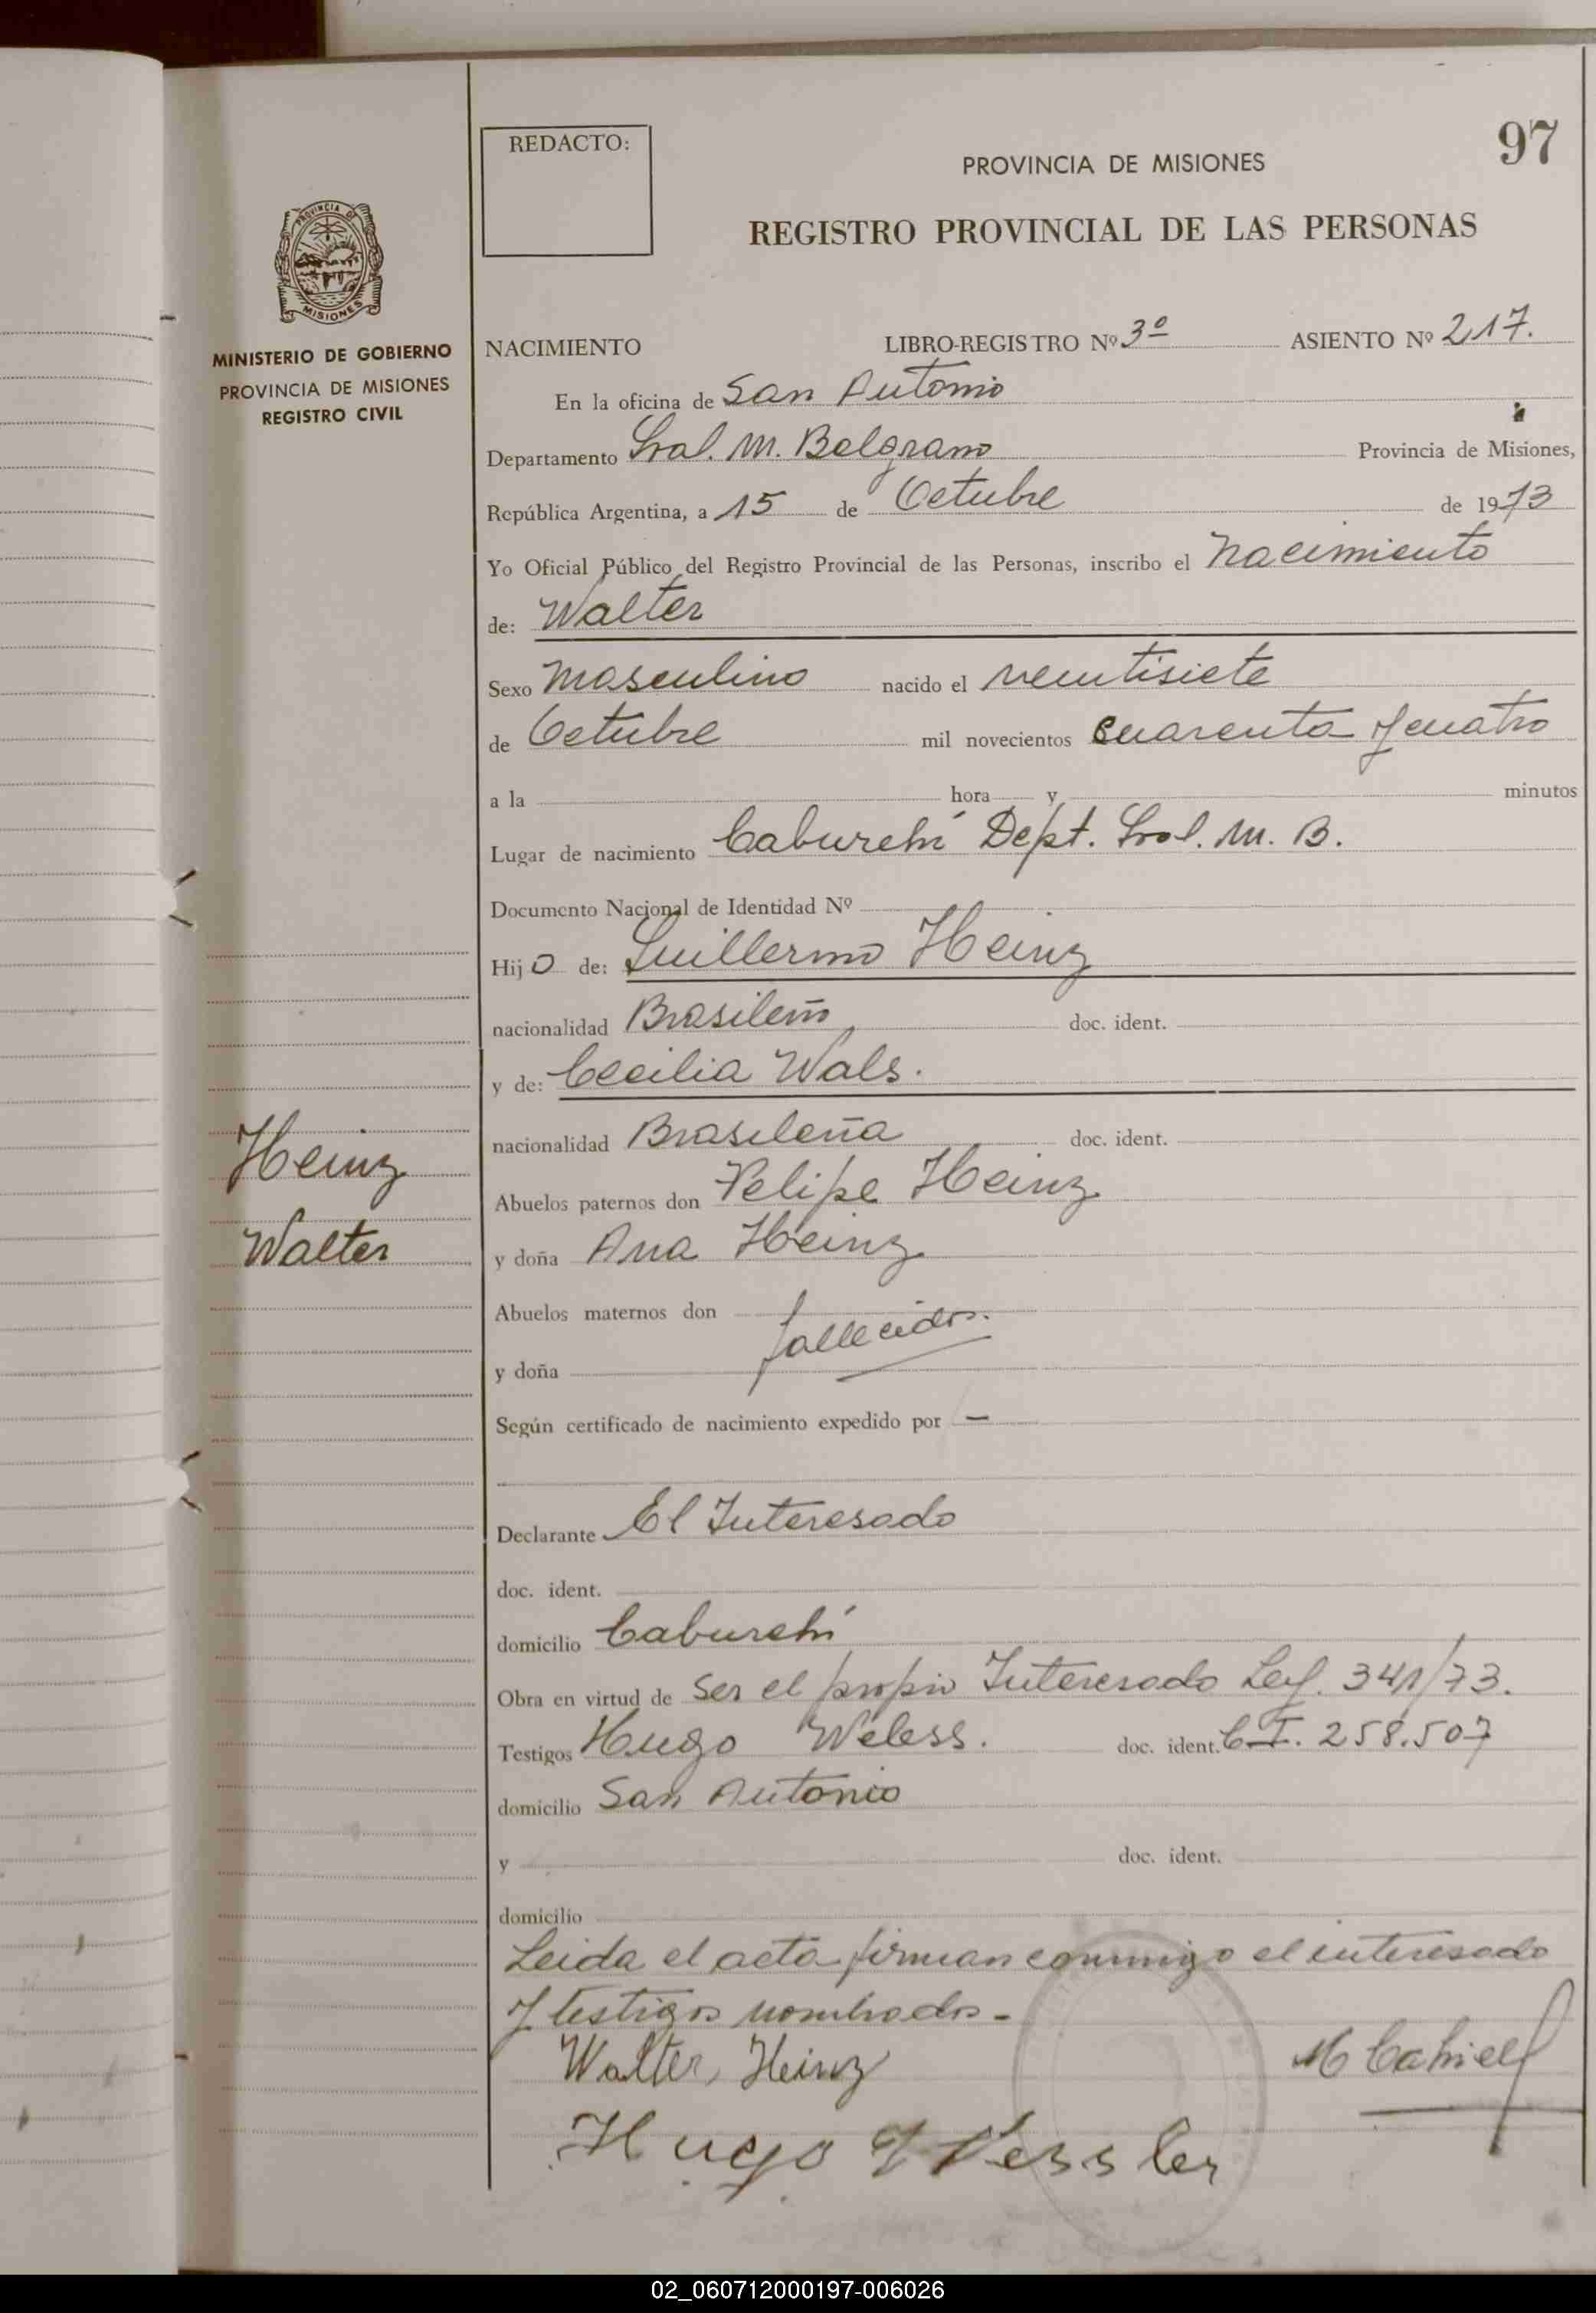 97
REDACTO:
PROVINCIA DE MISIONES
REGISTRO PROVINCIAL DE LAS PERSONAS
PROVINCIA DE
MISIONES
MINISTERIO DE GOBIERNO
PROVINCIA DE MISIONES
REGISTRO CIVIL
NACIMIENTO LIBRO-REGISTRO Nº 3º ASIENTO Nº 217.
En la oficina de San Antonio
Departamento Gral. M. Belgrano Provincia de Misiones,
República Argentina, a 15 de Octubre de 1973
Yo Oficial Público del Registro Provincial de las Personas, inscribo el Nacimiento
de: Walter
Sexo Masculino nacido el veintisiete
de Octubre mil novecientos cuarenta y cuatro
a la hora y minutos
Lugar de nacimiento Caburehí Dept. Gral. M. B.
Documento Nacional de Identidad Nº
Hijo de: Guillermo Heinz
nacionalidad Brasileño doc. ident.
y de: Cecilia Wals.
nacionalidad Brasileña doc. ident.
Heinz
Abuelos paternos don Felipe Heinz
Walter
y doña Ana Heinz
Abuelos maternos don
fallecidos.
y doña
Según certificado de nacimiento expedido por —
Declarante El Interesado
doc. ident.
domicilio Caburehí
Obra en virtud de Ser el propio Interesado Ley. 341/73.
Testigos Hugo Weless. doc. ident. C.I. 258.507
domicilio San Antonio
y doc. ident.
domicilio
Leida el acta firman conmigo el interesado
y testigos nombrados -
Walter, Heinz
Hugo Wessler
02_060712000197-006026